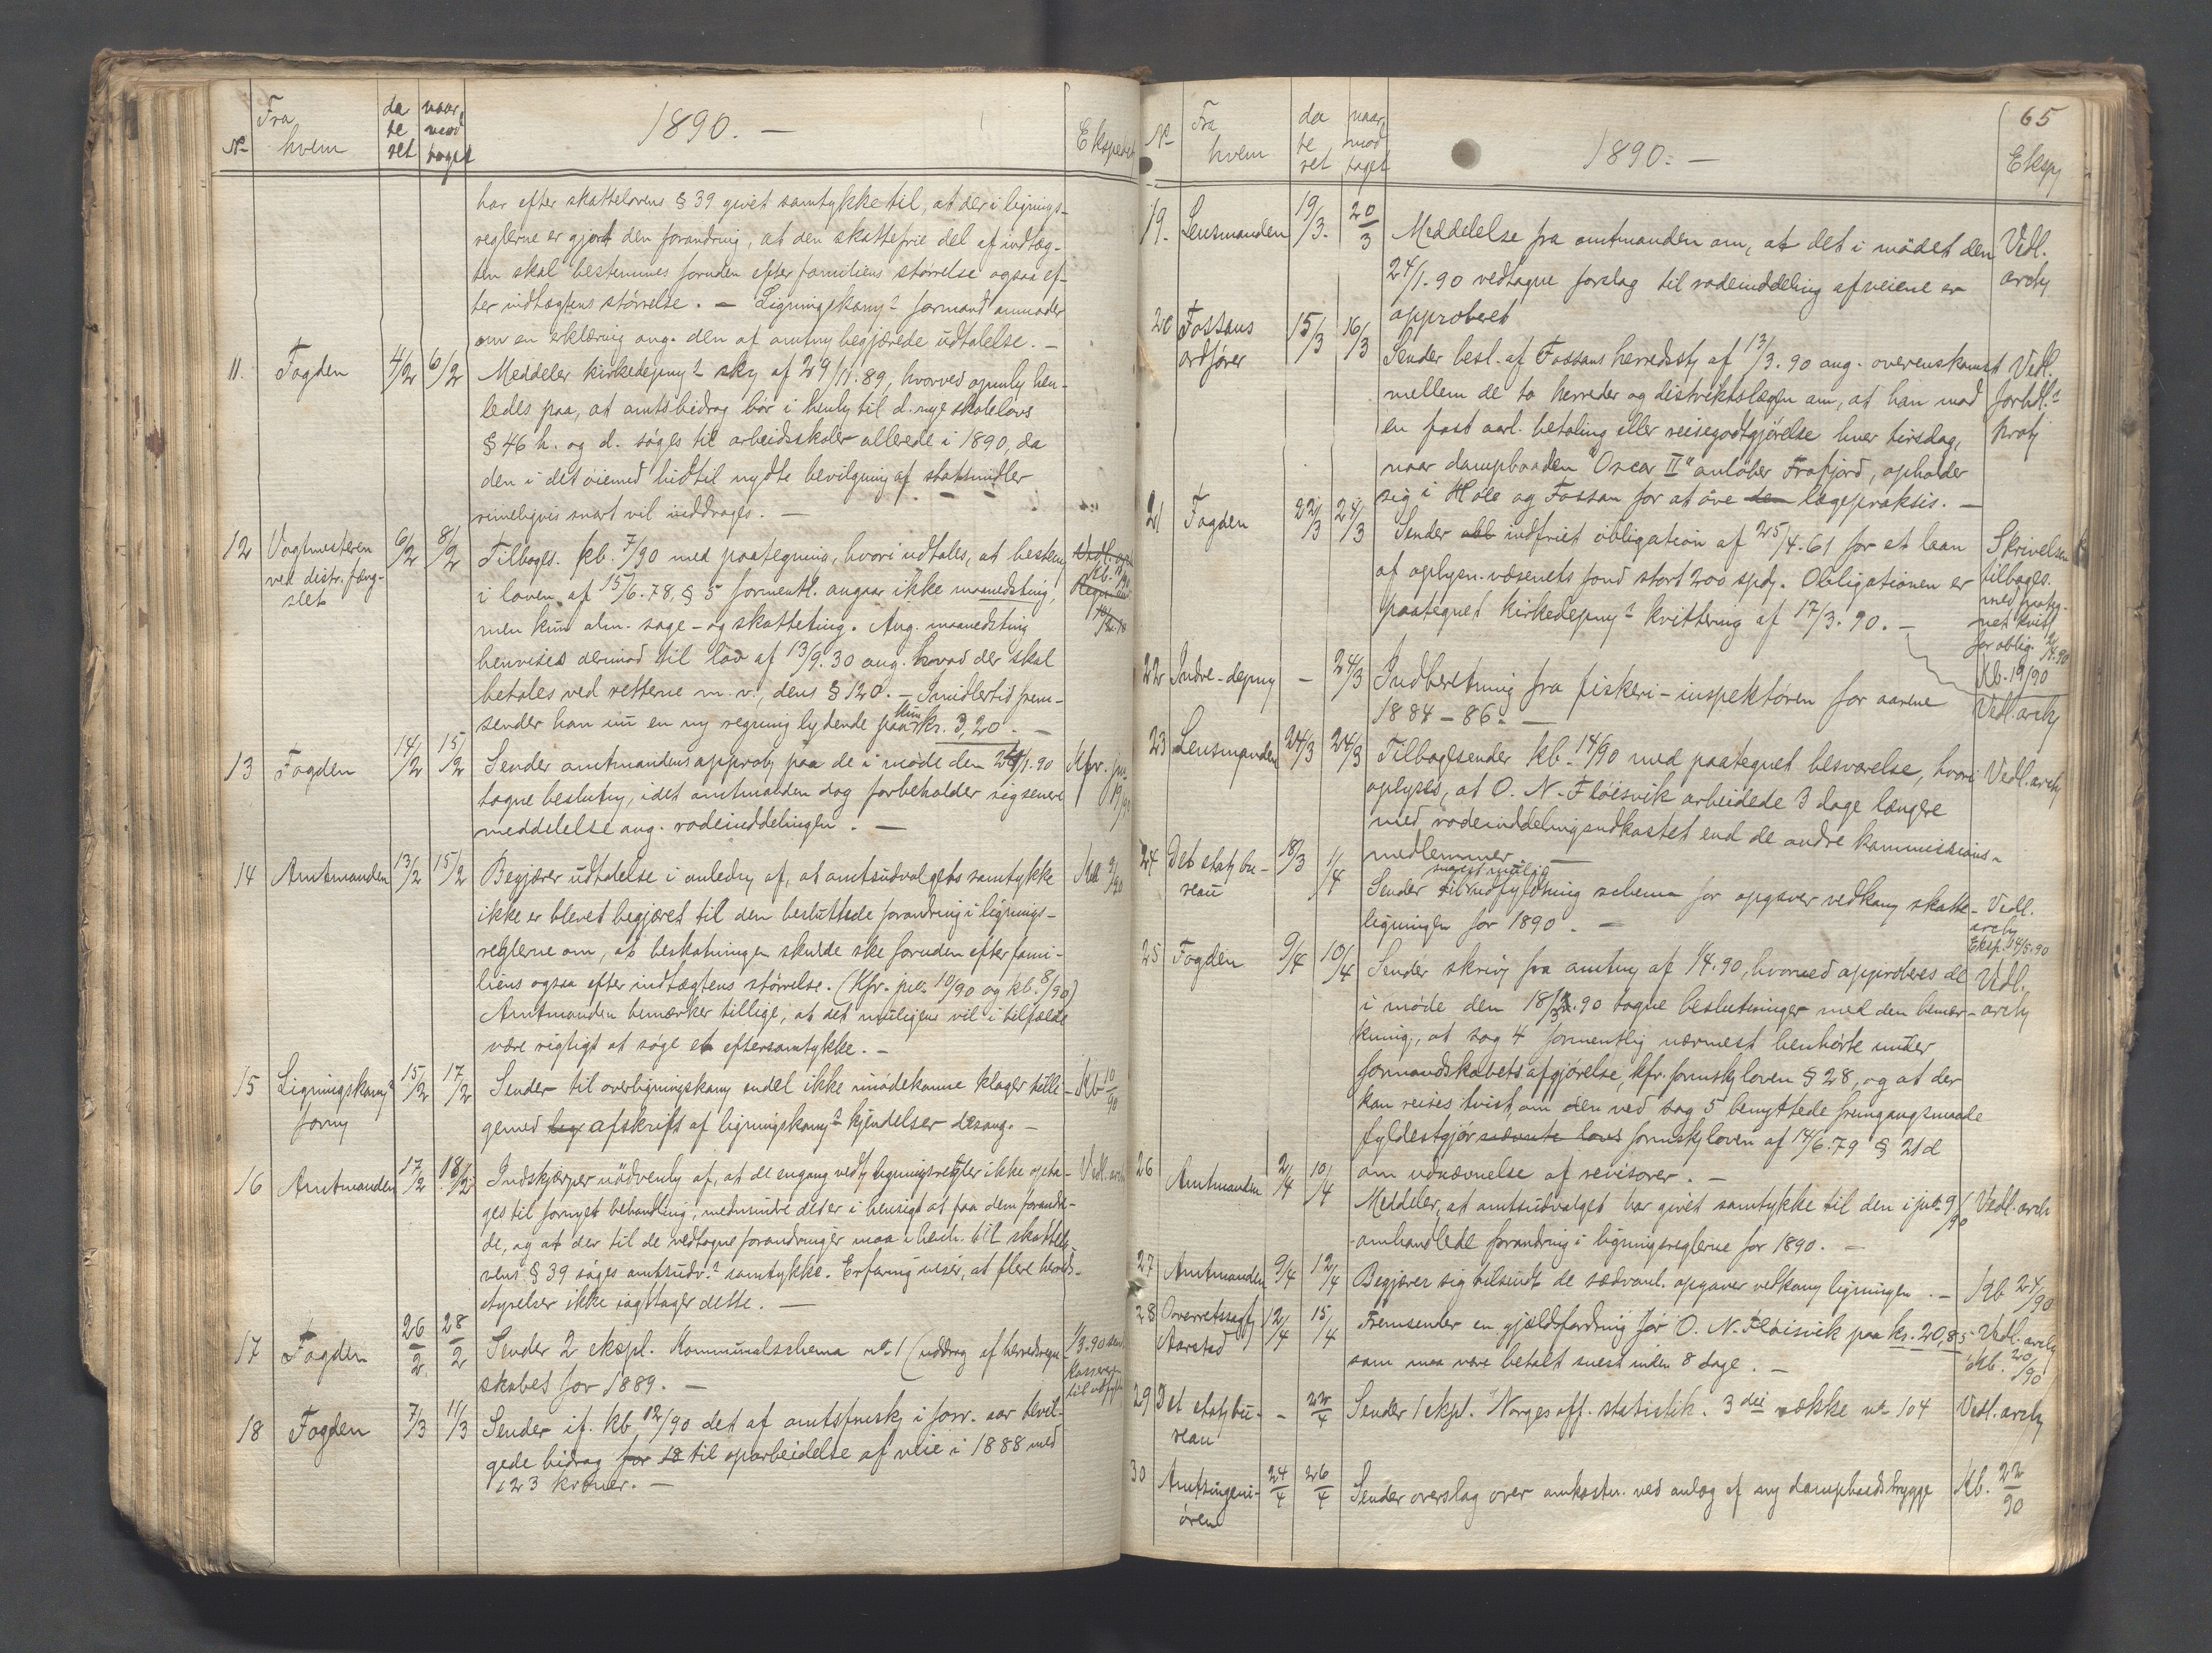 Nº Fra hvem da te ret naar mod taget 1890. — Eksperet
har efter skattelovens § 39 givet samtykke til, at der i lignings-
reglerne er gjort den forandring, at den skattefrie del af indtæg-
ten skal bestemmes foruden efter familiens størrelse ogsaa ef-
ter indtægtens størrelse. — formand anmoder
om en erklæring ang. den af begjærede udtalelse. —
11. Fogden 4/2 6/2 Meddeler af 29/11.89, hvorved hen-
ledes paa, at amtsbidrag bør i til d. nye skolelovs
§ 46 h. og d. søges til arbeidsskoler allerede i 1890, da
den i det øiemed hidtil nydte bevilgning af statsmidler
rimeligvis snart vil inddrages. —
12 Vagtmesteren 6/2 8/2 Tilbages. kb. 7/90 med paategning, hvori udtales, at
ved distr. fæng-
slet
i loven af 15/6.78, § 5 angaar ikke maanedsting,
men kun alm. sage- og skatteting. Ang. maanedsting
henvises derimod til lov af 13/9.30 ang. hvad der skal
betales ved retterne m. v., dens § 120. — Imidlertid frem-
sender han nu en ny regning lydende paa kun kr. 3,20. —
13 Fogden 14/2 15/2 Sender amtmandens paa de i møde den 24/1.90
tagne idet amtmanden dog forbeholder sig senere
meddelelse ang. rodeinddelingen. —
14 Amtmanden 13/2 15/2 Begjærer udtalelse i af, at amtsudvalgets samtykke Kb 9/90
ikke er blevet begjæret til den besluttede forandring i lignings-
reglerne om, at beskatningen skulde ske foruden efter fami-
liens ogsaa efter indtægtens størrelse. (Kfr. 10/90 og kb. 8/90)
Amtmanden bemærker tillige, at det muligens vil i tilfælde
være rigtigt at søge et eftersamtykke. —
15 15/2 17/2 Sender til endel ikke imødekomne klager tilli- Kb 10/90
gemed afskrift af kjendelser desang. —
16 Amtmanden 17/2 18/2 Indskjærper af, at de engang ligningsregler ikke opta- Vedl.
ges til fornyet behandling, medmindre det er i hensigt at faa dem forandre-
de, og at der til de vedtagne forandringer maa i henh. til skattelo-
vens § 39 søges samtykke. Erfaring viser, at flere herreds-
styrelser ikke iagttager dette. —
17 Fogden 26/2 28/2 Sender 2 ekspl. Kommunalschema nº 1 (uddrag af herredregn- 1/3.90
skabet for 1889. —
18 Fogden 7/3 11/3 Sender if. kb. 12/90 det af i forr. aar bevil-
gede bidrag for 18 til oparbeidelse af veie i 1888 med
123 kroner. —
65
Nº Fra hvem da te ret naar mod taget 1890. — Eksp
19. Lensmanden 19/3. 20/3 Meddelelse fra amtmanden om, at det i mødet den Vedl.
24/1.90 vedtagne forslag til rodeinddeling af veiene er
approberet
20 Fossans 15/3 16/3 Sender besl. af Fossans af 13/3.90 ang. overenskomst Vedl.
ordfører mellem de to herreder og distriktslægen om, at han mod
en fast aarl. betaling eller reisegodtgjørelse hver tirsdag,
naar dampbaaden "Oscar II" anløber Frafjord, opholder
sig i Hole og Fossan for at øve den lægepraksis. —
21 Fogden 22/3 24/3 Sender indfriet obligation af 25/4.61 for et laan Skrivelsen
af oplysn.væsenets fond stort 200 spd. Obligationen er tilbages.
paategnet kvittering af 17/3.90. —
for oblig.
Kb. 19/90
22 — 24/3 Indberetning fra fiskeri-inspektøren for aarene
1884-86. —
23 Lensmanden 24/3 24/3 Tilbagesender kb. 14/90 med paategnet besvarelse, hvori
oplyses, at O. N. Fløisvik arbeidede 3 dage længere
med rodeinddelingsudkastet end de andre kommissions-
medlemmer —
24 18/3 1/4 Sender til udfyldning schema for opgaver skatte- Vedl.
ligningen for 1890. —
25 Fogden 9/4 10/4 Sender fra af 1/4.90, hvorved approberes de Vedl.
i møde den 18/3.90 tagne beslutninger med den bemær-
kning, at sag 4 formentlig nærmest henhørte under
formandskabets afgjørelse, kfr. § 28, og at der
kan reises tvist, om den ved sag 5 benyttede fremgangsmaade
fyldestgjør nævnte lovs af 14/6.79 § 21 d
om udnævnelse af revisorer. —
26 Amtmanden 2/4 10/4 Meddeler, at amtsudvalget har givet samtykke til den i 9/90
omhandlede forandring i ligningsreglerne for 1890. —
27 Amtmanden 9/4 12/4 Begjærer sig tilsendt de sædvanl. opgaver ligningen. — Kb 24/90
28 Aarstad 12/4 15/4 Fremsender en gjældsfordring for O. N. Fløisvik paa kr. 20,85
som maa være betalt inden 8 dage. — Kb. 20/90
29 — 22/4 Sender 1 ekpl. "Norges off. statistik. 3die række nº 104
30 Amtsingeni- 24/4 26/4 Sender overslag over omkostn. ved anlæg af ny dampbaadsbrygge Kb. 22/90
ören